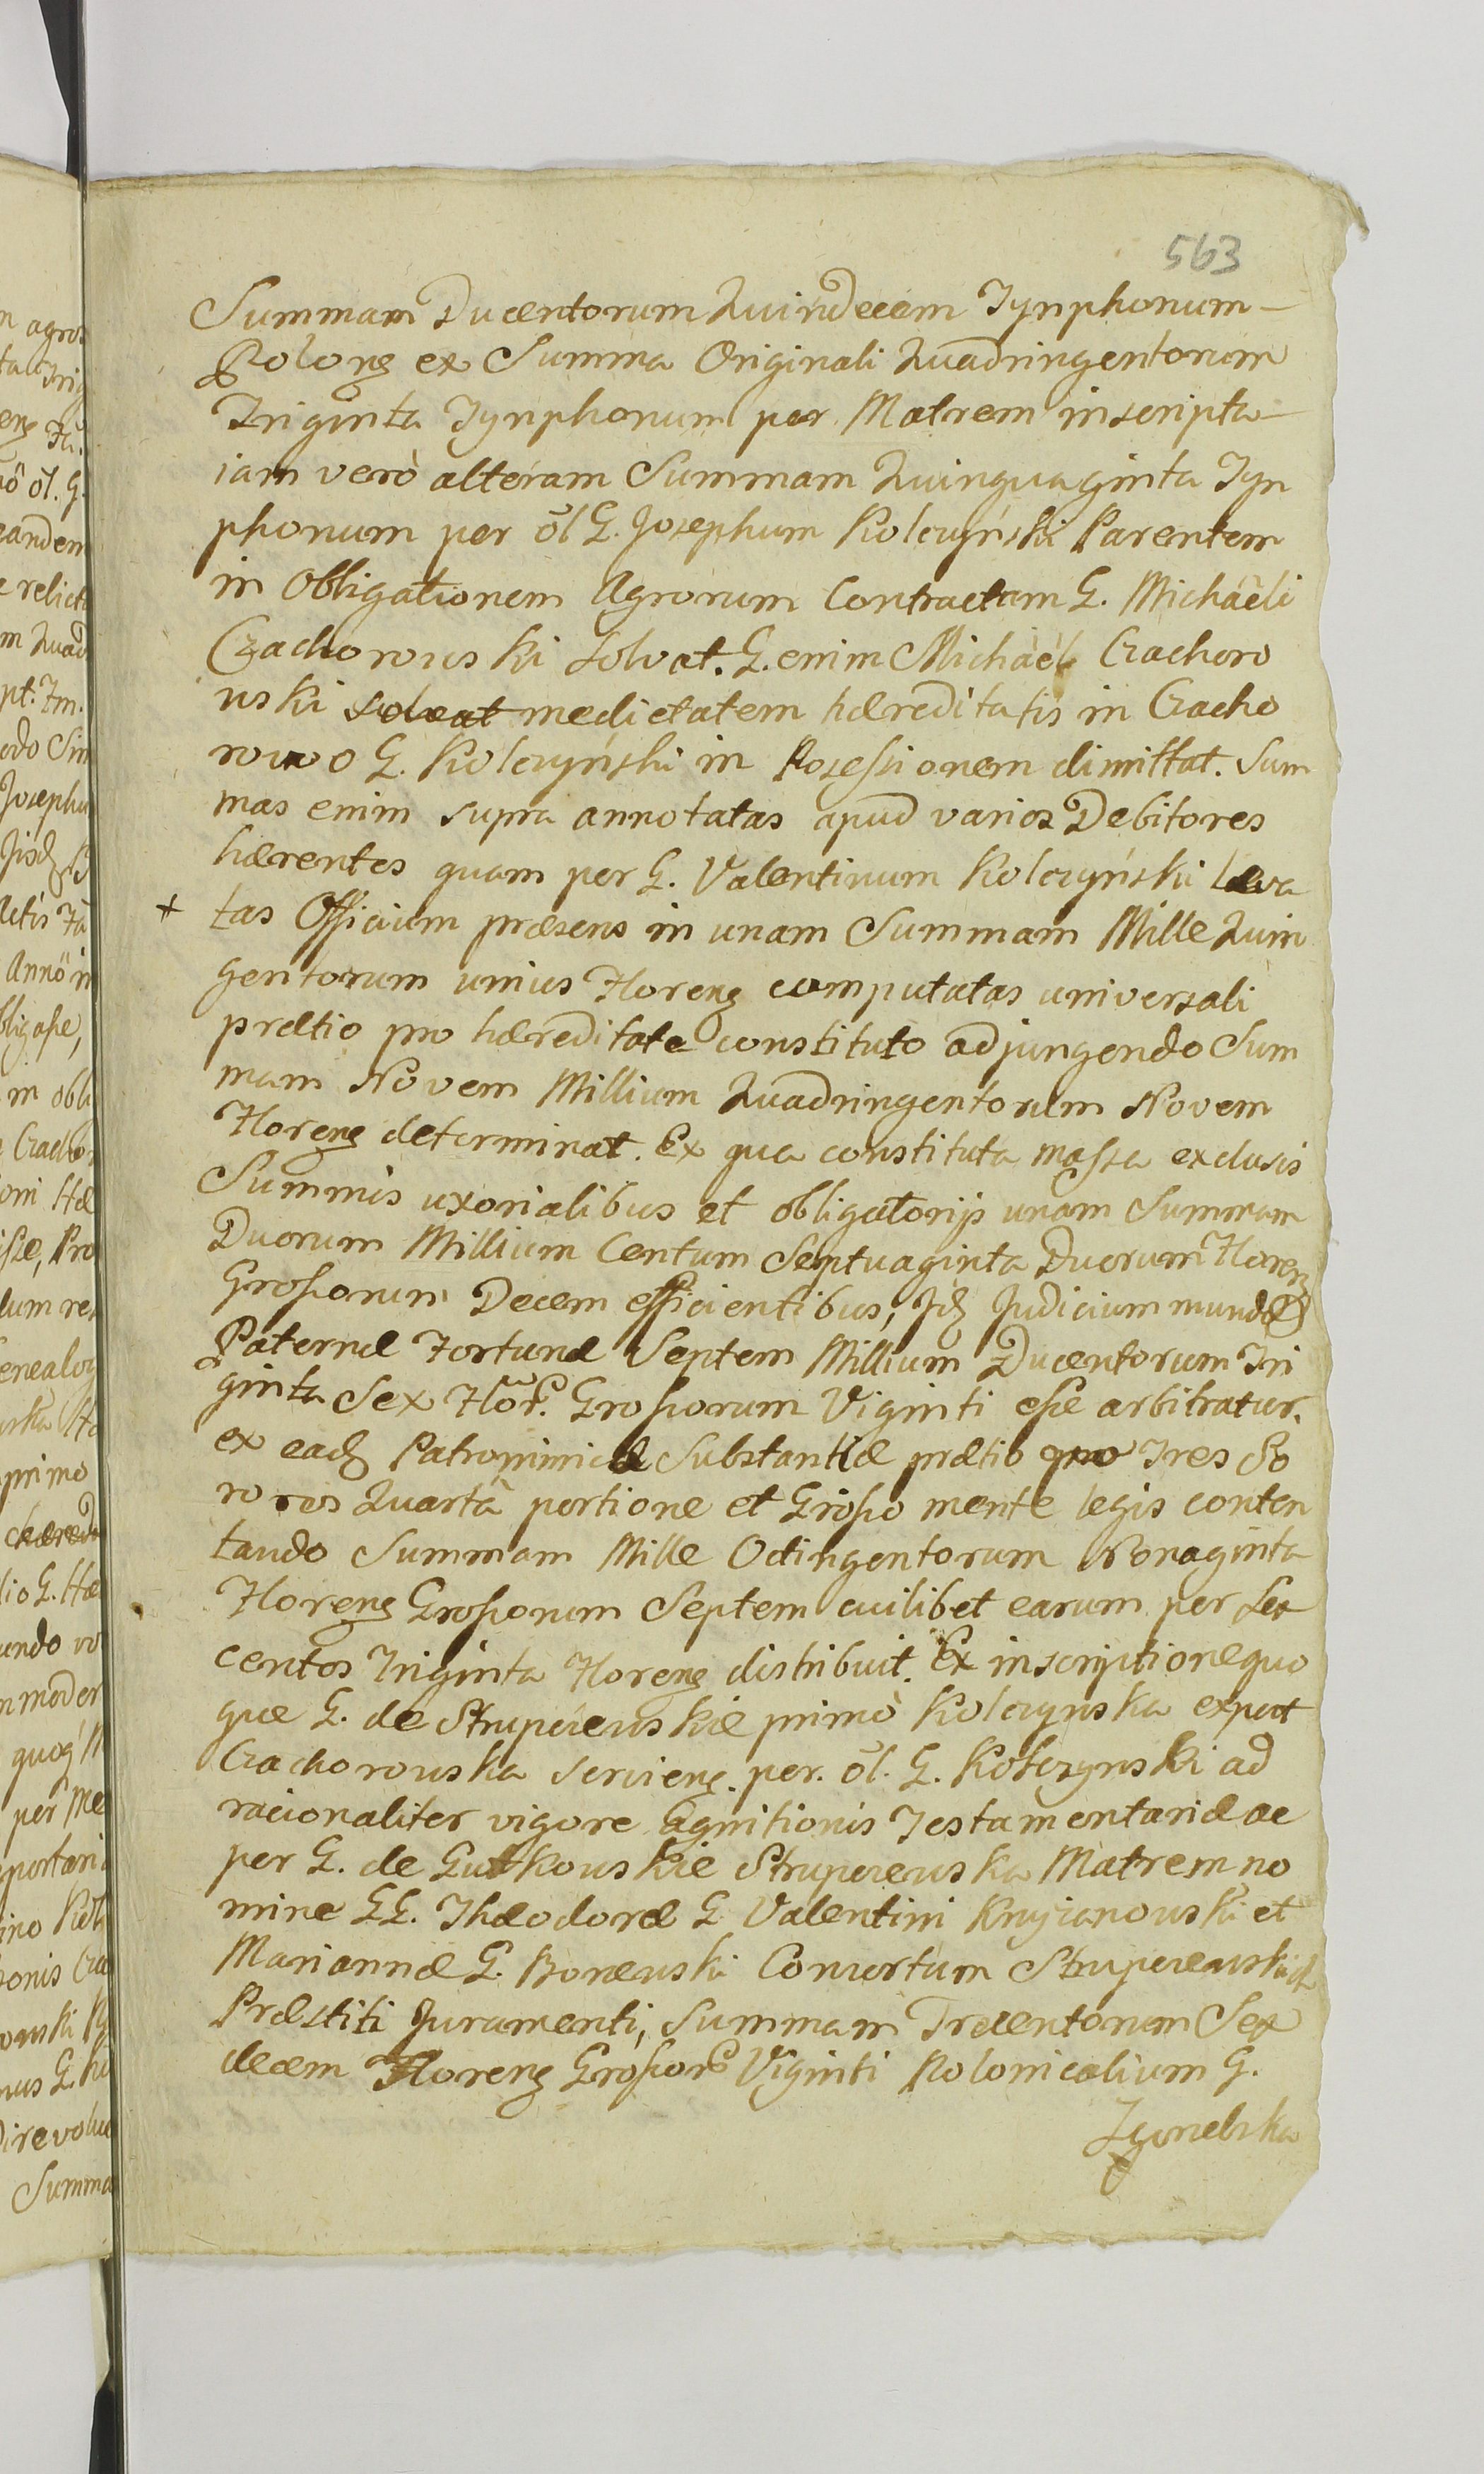 563
Summam Ducentorum Quindecem Tynphonum –
Polong ex Summa Originali Quadringentorum
Triginta Tynphonum per Matrem inscripta –
iam verò alteram Summam Quinquaginta Tyn
phonum per õl G. Josephum Kolczyński Parentem
in Obligationem Agrorum Contractam G. Michaëli
Czachorowski solvat. G. enim Michaël Czachoro
wski solvat medietatem hæreditatis in Czacho
rowo G. Kolczyński in Possessionem dimittat. Sum
mas enim supra annotatas apud varios Debitores
hærentes quam per G. Valentinum Kolczyński leva
+ tas Officium præsens in unam Summam Mille Quin
gentorum unius Floreng computatas universali
prætio pro hæreditate constituto adjungendo Sum
mam Novem Millium Quadringentorum Novem
Floreng determinat. Ex qua constituta massa exclusis
Summis uxorialibus et obligatorijs unam Summam
Duorum Millium Centum Septuaginta Duorum Floreng
Grossorum Decem efficientibus, Jd Judicium mundæ
Paternæ Fortunæ Septem Millium Ducentorum Tri
ginta Sex Flor. Grossorum Viginti esse arbitratur.
ex ead Patronimicæ Substantiæ prætio quo Tres So
rores Quartâ portione et Grosso mente legis conten
tando Summam Mille Octingentorum Nonaginta
Floreng Grossorum Septem cuilibet earum per Sex
centos Triginta Floreng distribuit. Ex inscriptione quo
que G. de Strupczewskie primò Kolczynska expost
Czachorowska servieng. per. õl. G. Kolczynski ad
racionaliter vigore Agnitionis Testamentariæ ac
per G. de Gutkowskie Strupczewska Matrem no
mine GG. Theodoræ G. Valentini Knyzanowski et
Mariannæ G. Borewski Consortum Strupczewskich
Præstiti Juramenti, Summam Trecentorum Sex
decem Floreng Grossor Viginti Polonicalium G.
Zgonelska